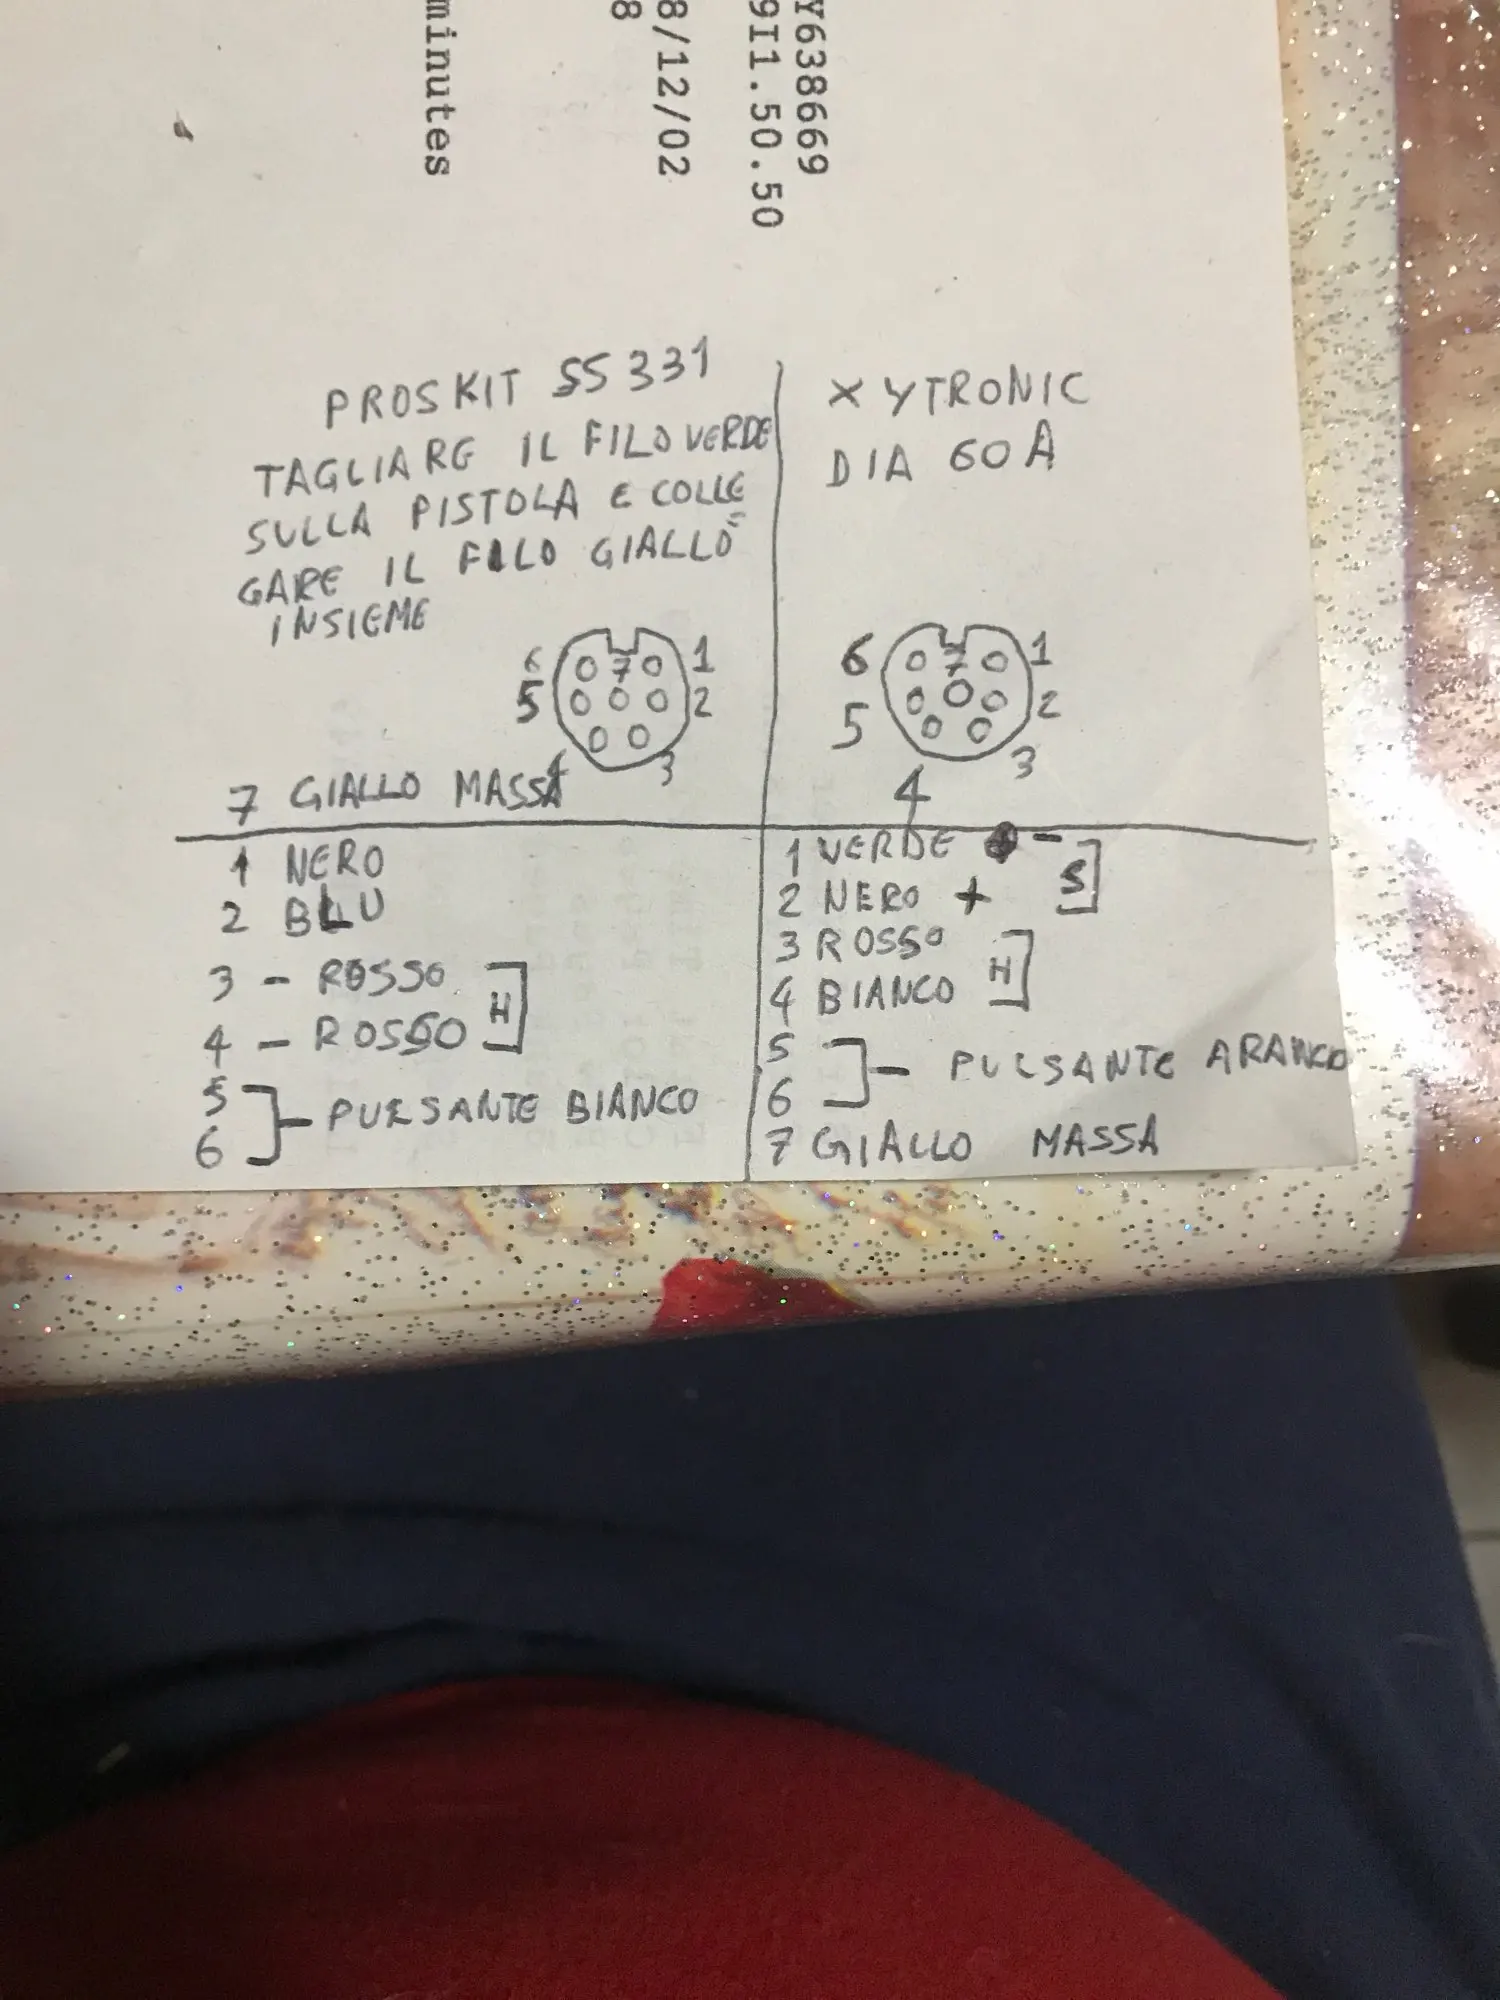 Y638669
9I1.50.50
8/12/02
8
minutes
PROSKIT SS331
TAGLIARE IL FILO VERDE
SULLA PISTOLA E COLLE=
GARE IL FILO GIALLO
INSIEME
6 7 1
5 2
4 3
7 GIALLO MASSA
1 NERO
2 BLU
3 - ROSSO
4 - ROSSO
H
5
6
- PULSANTE BIANCO
XYTRONIC
DIA 60A
6 7 1
5 2
4 3
1 VERDE -
2 NERO +
S
3 ROSSO
4 BIANCO
H
5
6
- PULSANTE ARANCO
7 GIALLO MASSA